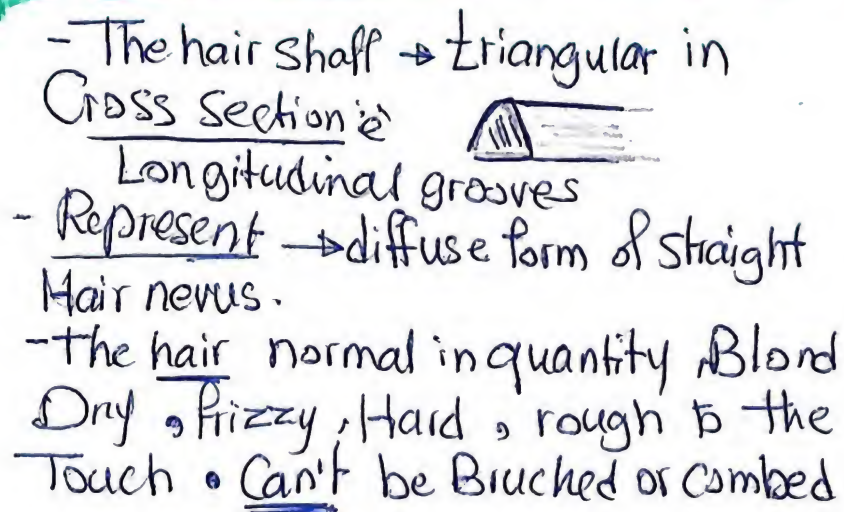 - The hair shaff → triangular in
Cross Section c̄
Longitudinal grooves
- Represent → diffuse form of straight
Hair nevus.
- the hair normal in quantity, Blond
Dry, frizzy, Hard, rough to the
Touch. Can't be Bruched or combed